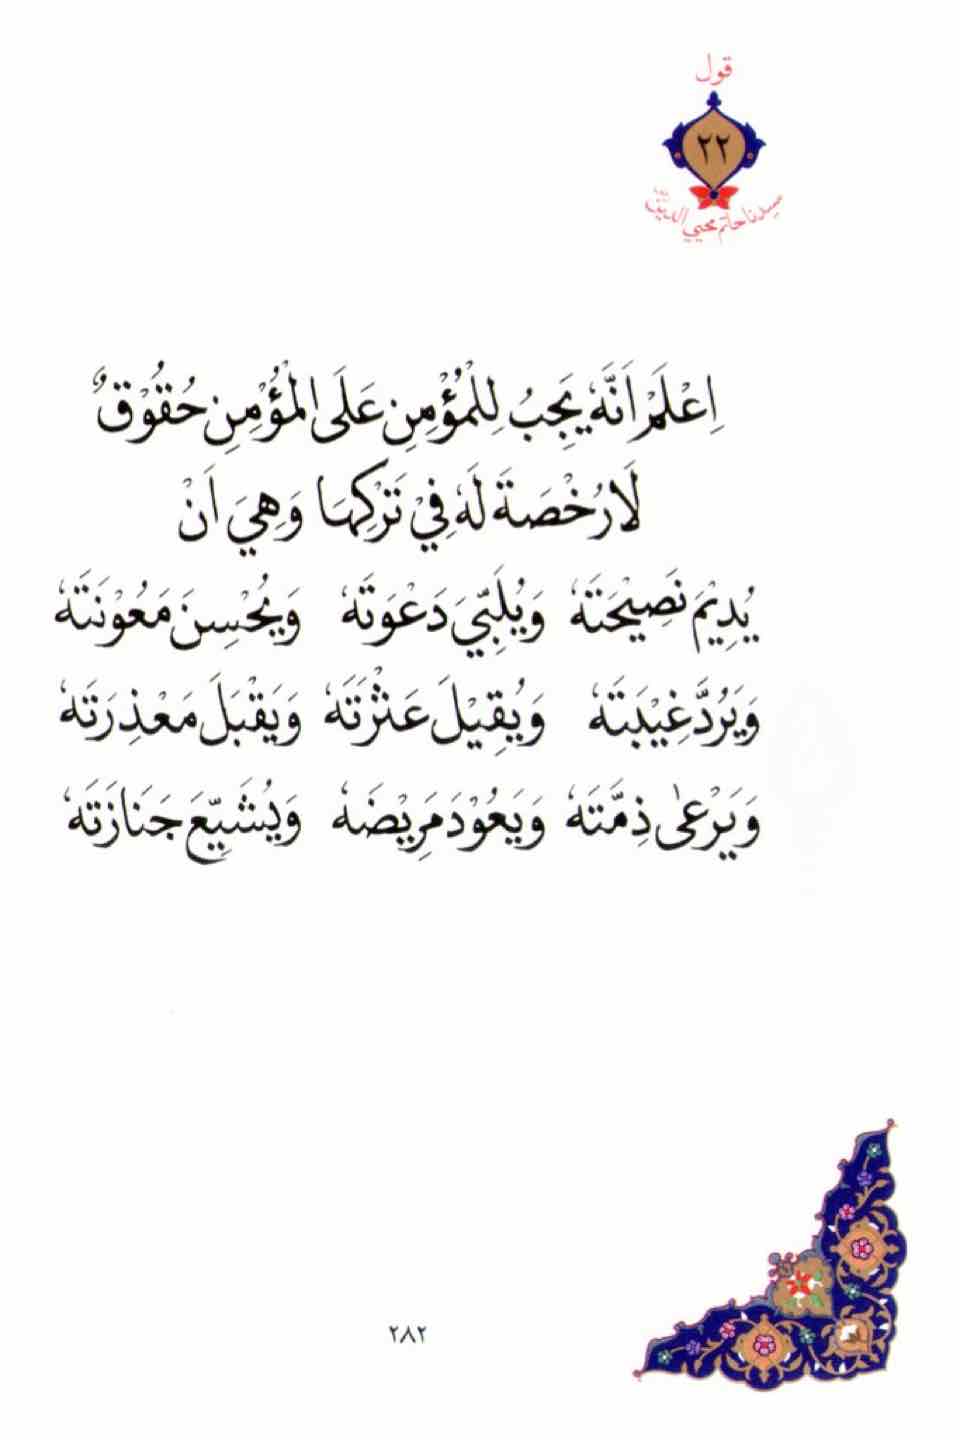 قول
٢٢
سيدنا حاتم محيي الدين
اِعْلَمْ اَنَّهٗ يَجِبُ لِلْمُؤْمِنِ عَلَى الْمُؤْمِنِ حُقُوْقٌ
لَا رُخْصَةَ لَهٗ فِيْ تَرْكِهَا وَهِيَ اَنْ
يُدِيْمَ نَصِيْحَتَهٗ وَيُلَبِّيَ دَعْوَتَهٗ وَيُحْسِنَ مَعُوْنَتَهٗ
وَيَرُدَّ غِيْبَتَهٗ وَيُقِيْلَ عَثْرَتَهٗ وَيَقْبَلَ مَعْذِرَتَهٗ
وَيَرْعٰى ذِمَّتَهٗ وَيَعُوْدَ مَرِيْضَهٗ وَيُشَيِّعَ جَنَازَتَهٗ
٢٨٢